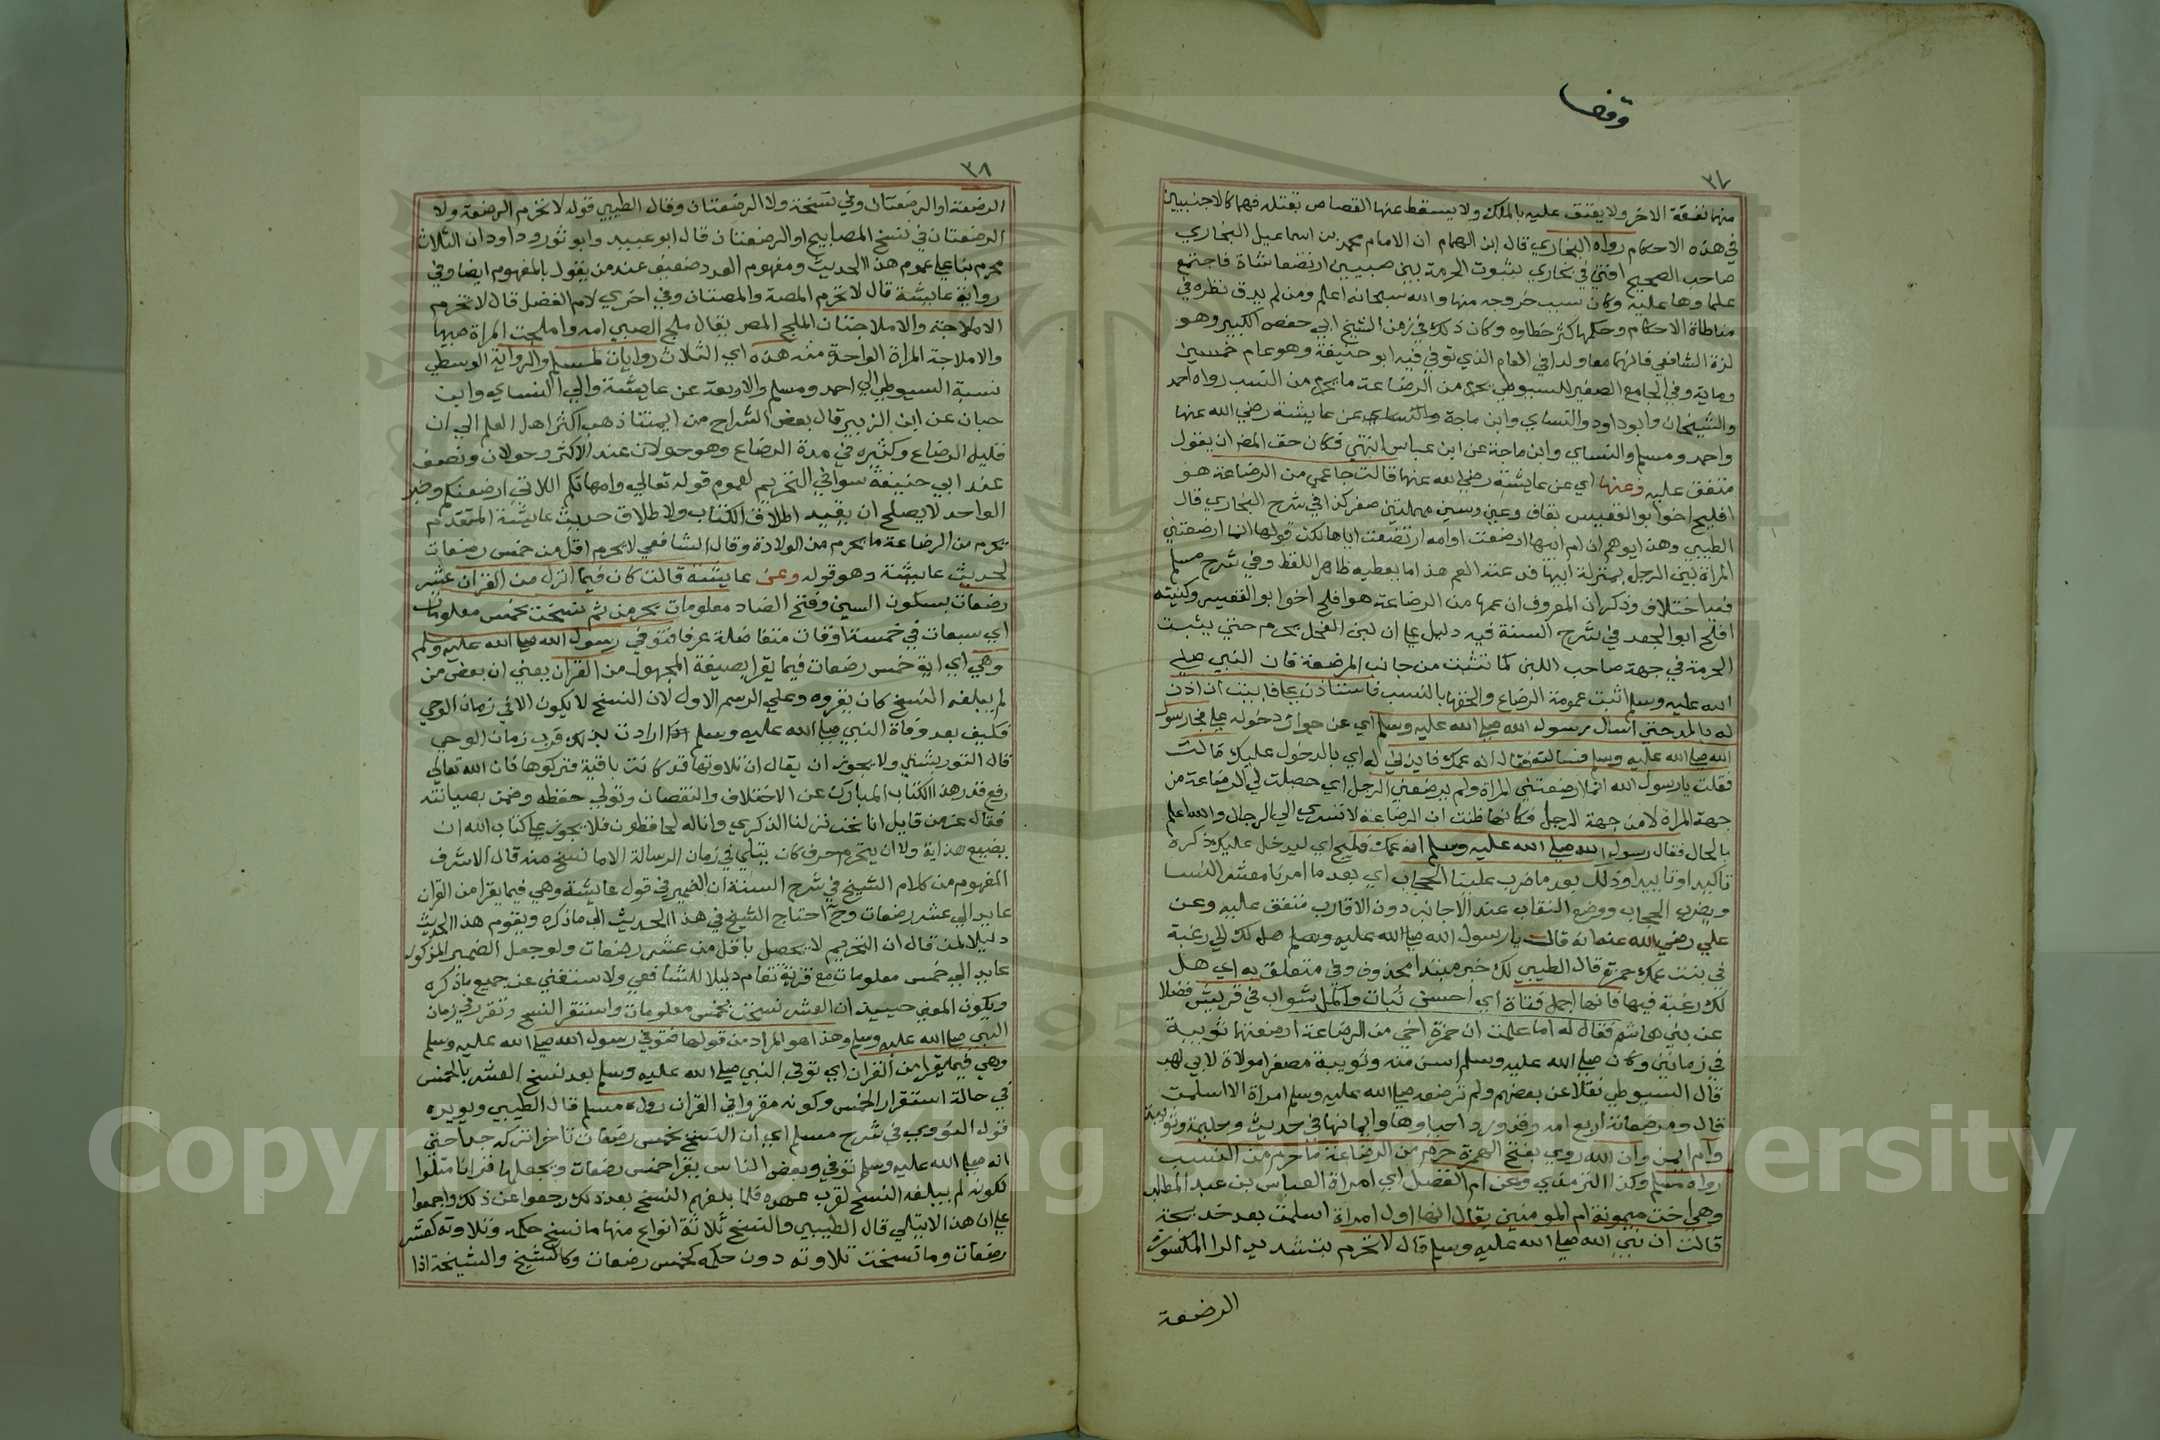 وقفا
٣٧
منهما نفقة الاخر ولا يعتق عليه بالملك ولا يسقط عنها القصاص بقتله فهما كالاجنبيين
في هذه الاحكام رواه البخاري قال ابن الهمام ان الامام محمد بن اسماعيل البخاري
صاحب الصحيح افتى في بخاري بثبوت الحرمة بين صبيين ارتضعا شاة فاجتمع
علماوها عليه وكان سبب خروجه منها والله سبحانه اعلم ومن لم يدق نظره في
مناطاة الاحكام وحكمها كثر خطاوه وكان ذلك في زمن الشيخ ابي حفص الكبير وهو
لدة الشافعي فانهما معا ولدا في العام الذي توفي فيه ابو حنيفة وهو عام خمسين
وماية وفي الجامع الصغير للسيوطي يحرم من الرضاعة ما يحرم من النسب رواه احمد
والشيخان وابو داود والنساي وابن ماجة عن عايشة رضي الله عنها
واحمد ومسلم والنساي وابن ماجة عن ابن عباس انتهى فكان حق المص ان يقول
متفق عليه وعنها اي عن عايشة رضي الله عنها قالت جا عمي من الرضاعة هو
افليح اخوا بو القعيس بقاف وعين وسين مهملتين مصغر كذا في شرح البخاري قال
الطيبي وهذا يوهم ان ام ابيها ارضعت اوامه ارتضعت اباها لكن قولها انما ارضعتني
المراة يبين الرجل بمنزلة ابيها فدعته العم هذا ما يعطيه ظاهر اللفظ وفي شرح مسلم
فيه اختلاف وذكر ان المعروف ان عمها من الرضاعة هو افلح اخوا بو القعيس وكنيته
افلح ابو الجعد في شرح السنة فيه دليل على ان لبن الفحل يحرم حتي يثبت
الحرمة في جهة صاحب اللبن كما تثبت من جانب المرضعة فان النبي صلي
الله عليه وسلم اثبت عمومة الرضاع والحقها بالنسب فاستاذن علي فابيت ان اذن
له بالمد حتي اسال رسول الله صلي الله عليه وسلم اي عن جواز دخوله علي فجا رسول
الله صلي الله عليه وسلم فسالته فقال انه عمك فاذني له اي بالدخول عليك قالت
فقلت يا رسول الله انما ارضعتني المراة ولم يرضعني الرجل اي حصلت لي الرضاعة من
جهة المراة لا من جهة الرجل فكانها ظنت ان الرضاعة لا تسري الي الرجال والله اعلم
بالحال فقال رسول الله صلي الله عليه وسلم انه عمك فليلج اي ليدخل عليك ذكره
تاكيدا وتاييدا وذلك بعد ما ضرب علينا الحجاب اي بعد ما امرنا معشر النسا
وبضرب الحجاب ووضع النقاب عند الاجانب دون الاقارب متفق عليه وعن
علي رضي الله عنه انه قال يا رسول الله صلي الله عليه وسلم هل لك لي رغبة
في بنت عمك حمزة قال الطيبي لك خبر مبتدا محذوف وفي متعلق به اي هل
لك رغبة فيها فانها اجمل فتاة اي احسن ثبات واكمل شواب في قريش فضلا
عن بني هاشم فقال له اما علمت ان حمزة اخي من الرضاعة ارضعتها ثويبة
في زمانين وكان صلي الله عليه وسلم اسن منه وثويبة مصغرا مولاة لابي لهب
قال السيوطي نقلا عن بعضهم ولم ترضعه صلي الله عليه وسلم امراة الا اسلمت
قال ومرضعاته اربع امه وقد ورد احياوها وايمانها في حديث وحليمة وثويبة
وام ايمن وان الله روي بفتح الهمزة حرم من الرضاعة ما حرم من النسب
رواه مسلم وكذا الترمذي وعن ام الفضل اي امراة العباس بن عبد المطلب
وهي اخت ميمونة ام المومنين يقال انها اول امراة اسلمت بعد خديجة
قالت ان نبي الله صلي الله عليه وسلم قال لا تحرم بتشديد الرا المكسورة
الرضعة
٣٨
الرضعة او الرضعتان وفي نسخة ولا الرضعتان وقال الطيبي قوله لا تحرم الرضعة ولا
الرضعتان في نسخ المصابيح او الرضعتان قال ابو عبيد وابو ثور وداود ان الثلاث
محرم بنا علي عموم هذا الحديث ومفهوم العدد ضعيف عند من يقول بالمفهوم ايضا وفي
رواية عايشة قال لا تحرم المصة والمصتان وفي اخري لام الفضل قال لا تحرم
الاملاجة والاملاجتان الملج المص يقال ملج الصبي امه واملجت المراة صبيها
والاملاجة المراة الواحدة منه هذه اي الثلاث روايات لمسلم والرواية الوسطي
نسبة السيوطي الي احمد ومسلم والاربعة عن عايشة والي النساي وابن
حبان عن ابن الزبير قال بعض الشراح من ايمتنا ذهب اكثر اهل العلم الي ان
قليل الرضاع وكثيره في مدة الرضاع وهو حولان عند الاكثر وحولان ونصف
عند ابي حنيفة سوا في التحريم لعموم قوله تعالي وامهاتكم اللاتي ارضعنكم وخبر
الواحد لا يصلح ان يقيد اطلاق الكتاب ولاطلاق حديث عايشة المتقدم
يحرم من الرضاعة ما يحرم من الولادة وقال الشافعي لا يحرم اقل من خمس رضعات
لحديث عايشة وهو قوله وعن عايشة قالت كان فيما انزل من القران عشر
رضعات بسكون السين وفتح الضاد معلومات يحرمن ثم نسخت بخمس معلومات
اي سبعات في خمسة اوقات متفاضلة عرفا فتوفي رسول الله صلي الله عليه وسلم
وهي اي اية خمس رضعات فيما يقرا بصيغة المجهول من القران يعني ان بعض من
لم يبلغه النسخ كان يقروه وعلي الرسم الاول لان النسخ لا يكون الا في زمان الوحي
فكيف بعد وفاة النبي صلي الله عليه وسلم ارادت بذلك قرب زمان الوحي
قال التوربشتي ولا يجوز ان يقال ان تلاوتها قد كانت باقية فتركوها فان الله تعالي
رفع قدر هذا الكتاب المبارك عن الاختلاف والنقصان وتولي حفظه وضمن بصيانته
فقال عز من قايل انا نحن نزلنا الذكري وانا له لحافظون فلا يجوز علي كتاب الله ان
يضيع هذا اية ولا ان يتخرم احرف كان يتلي في زمان الرسالة الا ما نسخ منه قال الاشرف
المفهوم من كلام الشيخ في شرح السنة ان الضمير في قول عايشة وهي فيما يقرا من القران
عايد الي عشر رضعات وح احتاج الشيخ في هذا الحديث الي ما ذكره ويقوم هذا الحديث
دليلا لمن قال ان التحريم لا يحصل باقل من عشر رضعات ولو جعل الضمير المذكور
عايد الي خمس معلومات مع قربه لقام دليلا للشافعي ولاستغني عن جميع ما ذكره
ويكون المعني حينيذ ان العشر نسخت بخمس معلومات واستقر النسخ وتقرر في زمان
النبي صلي الله عليه وسلم وهذا هو المراد من قولها فتوفي رسول الله صلي الله عليه وسلم
وهي فيما يقرا من القران اي توفي النبي صلي الله عليه وسلم بعد نسخ العشر بالخمس
في حالة استقرار الخمس وكونه مقروا في القران رواه مسلم قال الطيبي ويويده
قول النووي في شرح مسلم اي ان النسخ بخمس رضعات تاخر انزاله جدا حتي
انه صلي الله عليه وسلم توفي وبعض الناس يقرا خمس رضعات ويجعلها قرانا متلوا
لكونه لم يبلغه النسخ لقرب عهده فلما بلغهم النسخ بعد ذلك رجعوا عن ذلك واجمعوا
علي ان هذا لا يتلي قال الطيبي والنسخ ثلاثة انواع منها ما نسخ حكمه وتلاوته كعشر
رضعات وما نسخت تلاوته دون حكمه كخمس رضعات وكالشيخ والشيخة اذا
Copyright © King Saud University